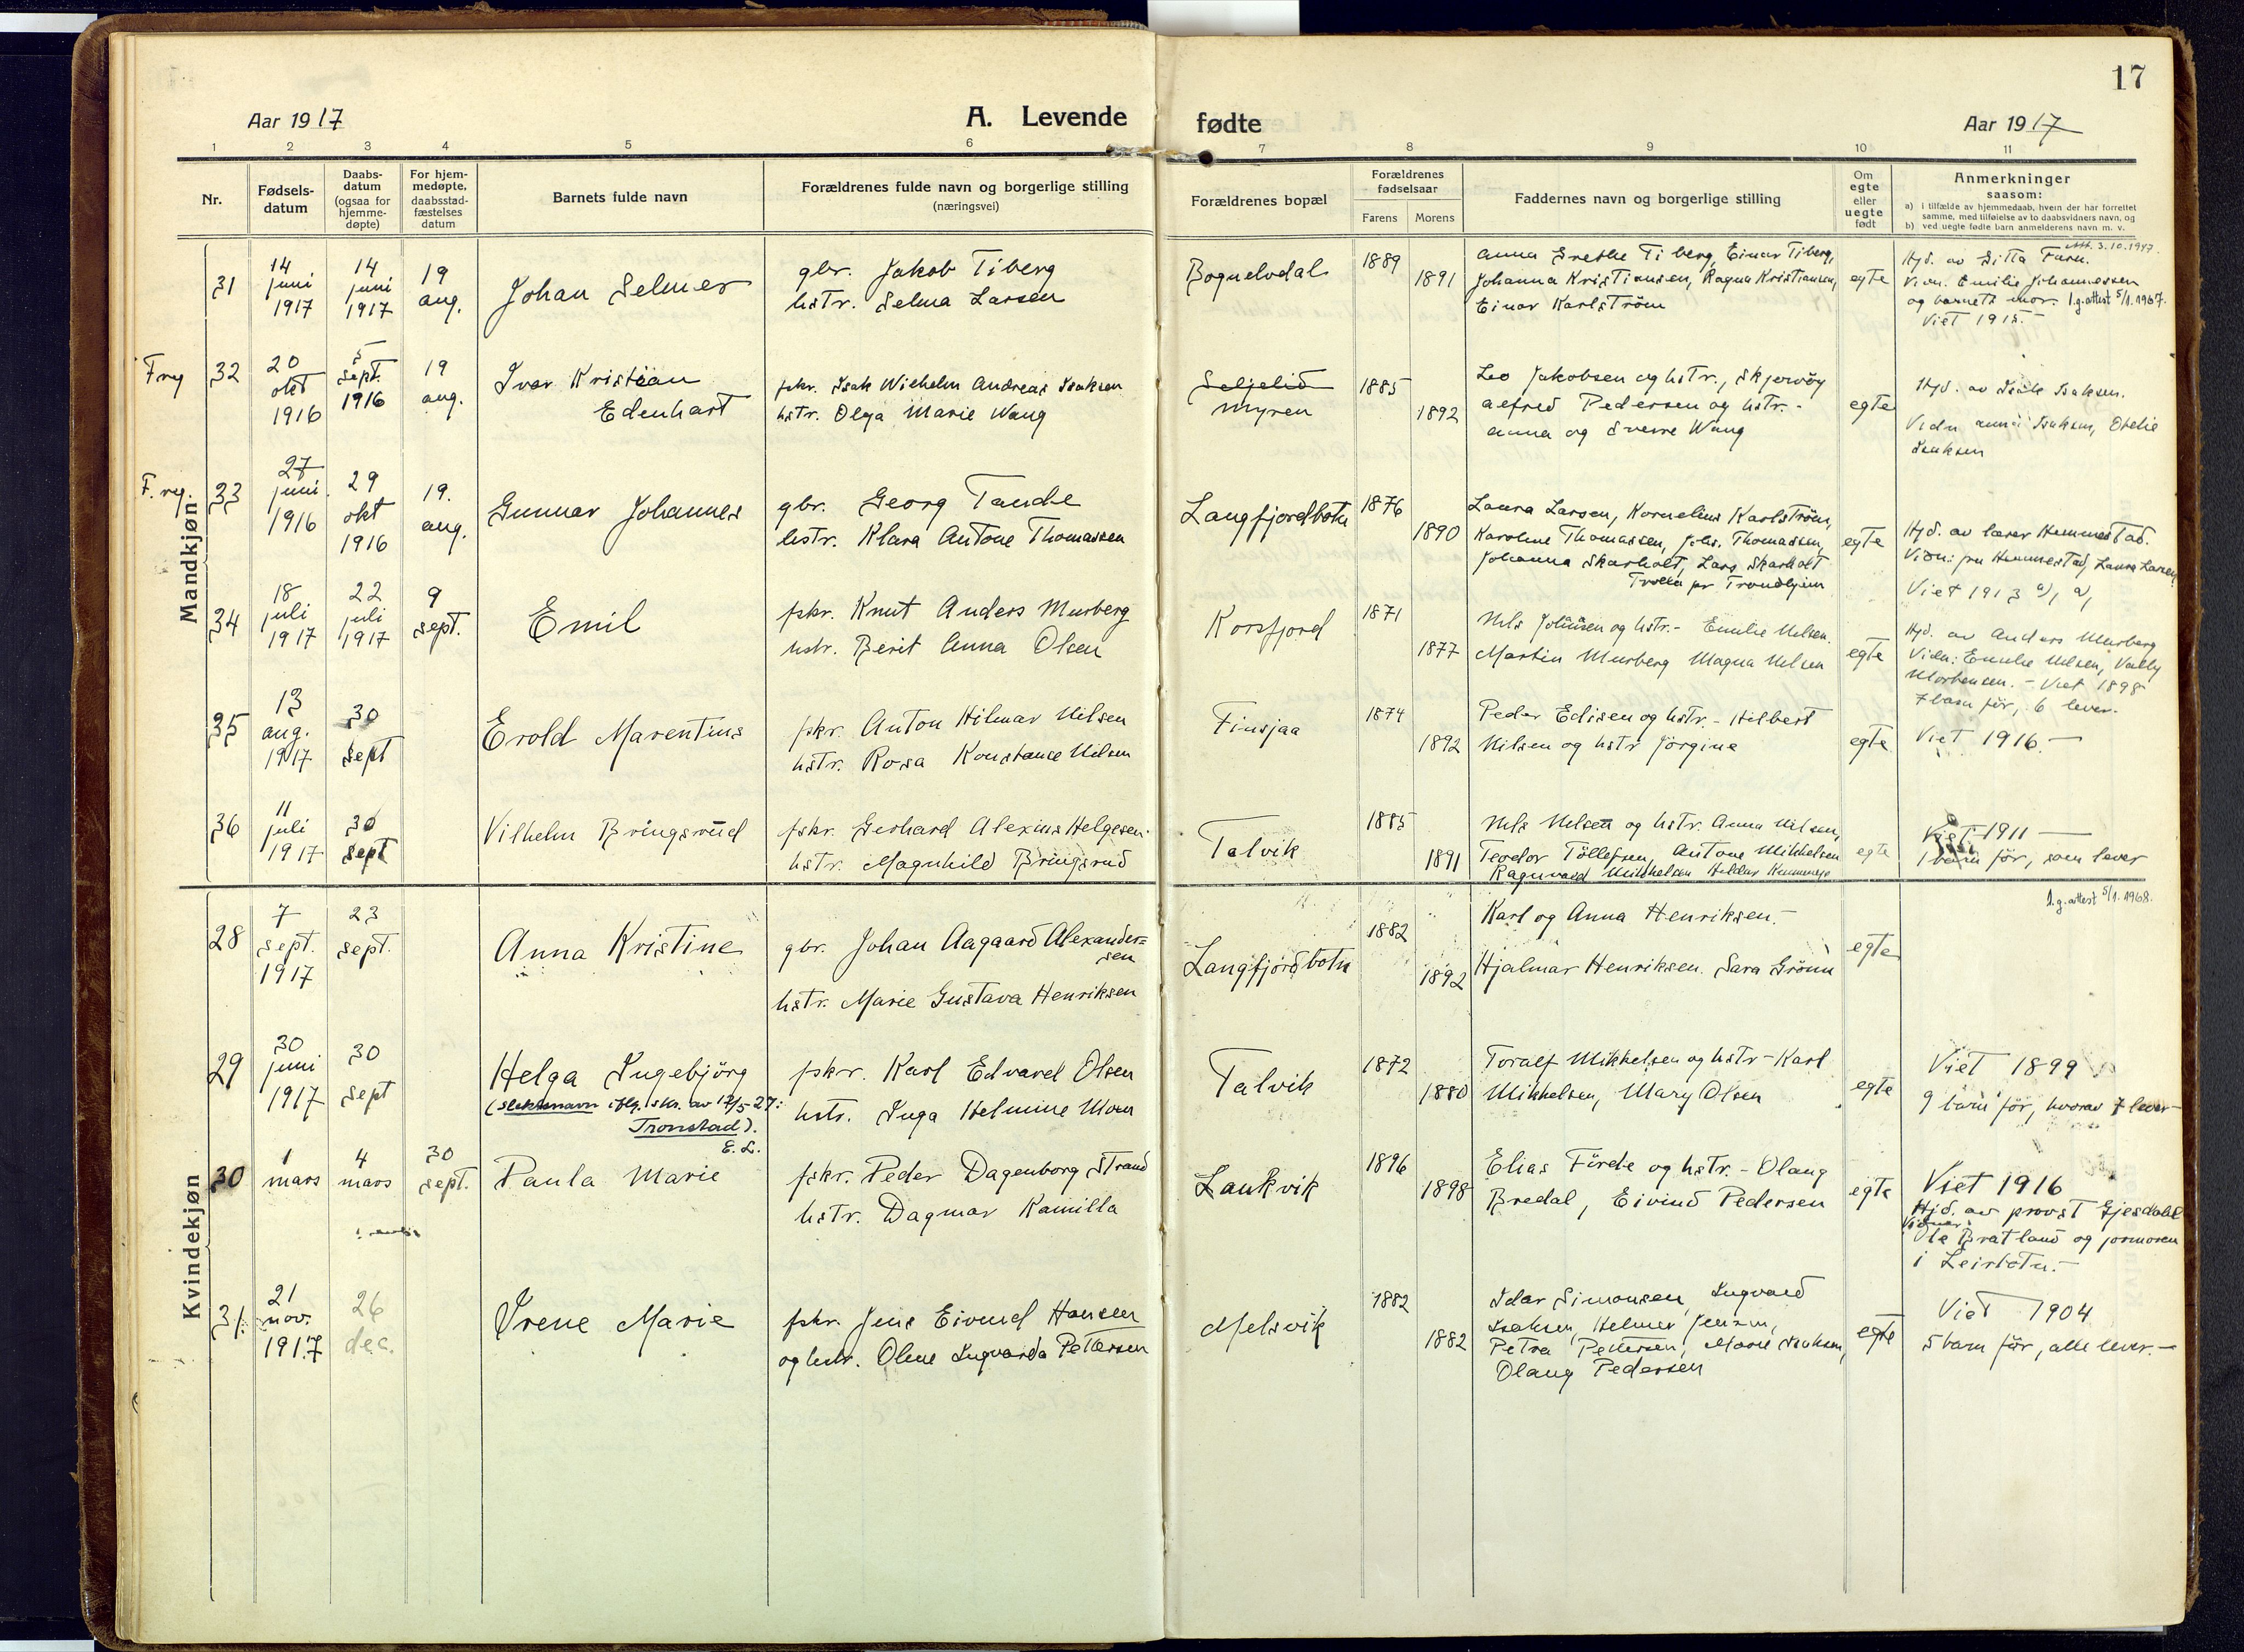 17
Aar 1917
A. Levende
fødte
Aar 1917
1 2 3 4 5 6 7 8 9 10 11
Nr.
Fødsels-
datum
Daabs-
datum
(ogsaa for
hjemme-
døpte)
For hjem-
medøpte,
daabsstad-
fæstelses
datum
Barnets fulde navn
Forældrenes fulde navn og borgerlige stilling
(næringsvei)
Forældrenes bopæl
Forældrenes
fødselsaar
Farens Morens
Faddernes navn og borgerlige stilling
Om
egte
eller
uegte
født
Anmerkninger
saasom:
a) i tilfælde av hjemmedaab, hvem der har forrettet
samme, med tilføielse av to daabsvidners navn, og
b) ved uegte fødte barn anmelderens navn m. v.
Mandkjøn
31
14
juni
1917
14
juni
1917
19
aug.
Johan Selmer
gbr. Jakob Tiberg
hstr. Selma Larsen
Bognelvdal
1889
1891
Anna Grethe Tiberg, Einar Tiberg,
Johanna Kristiansen, Ragna Kristiansen,
Einar Karlström
egte
Att. 3.10.1947
Hjd. av Gitta
Vidn. Emilie Johannessen
og barnets mor. l.g.attest 5/1.1967.
Viet 1915.-
32
20
okt
1916
5
sept.
1916
19
aug.
Ivar Kristian
Edenhart
fskr. Isak Wilhelm Andreas Isaksen
hstr. Olga Marie Wang
Seljelid
Myren
1885
1892
Leo Jakobsen og hstr., Skjervöy
Alfred Pedersen og hstr.-
Anna og Sverre Wang
egte
Hjd. av Isak Isaksen.
Vidn Anna Isaksen, Otelie
Isaksen
33
27
juni
1916
29
okt
1916
19.
aug.
Gunnar Johannes
gbr. Georg Tande
hstr. Klara Antone Thomassen
Langfjordbotn
1876
1890
Laura Larsen, Kornelius Karlström,
Karoline Thomassen, Johs. Thomassen,
Johanna Skarholt, Lars Skarholt
Trolla pr Trondhjem
egte
Hjd. av lærer Hemmestad.
Vidn: fru Hemmestad, Laura Larsen
Viet 1913
34
18
juli
1917
22
juli
1917
9
sept.
Emil
fskr. Knut Anders Murberg
hstr. Berit Anna Olsen
Korsfjord
1871
1877
Nils Johnsen og hstr.- Emilie Nilsen.
Martin Murberg Magna Nilsen
egte
Hjd. av Anders Murberg
Vidn: Emilie Nilsen, Vally
Mortensen. - Viet 1898
7 barn för, 6 lever.
35
13
aug.
1917
30
sept
Erold Marentius
fskr. Anton Hilmar Nilsen
hstr. Rosa Konstance Nilsen
Finsjaa
1874
1892
Peder Edisen og hstr.- Hilbert
Nilsen og hstr Jörgine
egte
Viet 1916.-
36
11
juli
1917
30
sept
Vilhelm Bringsrud
fskr. Gerhard Alexius Helgesen
hstr. Magnhild Bringsrud
Talvik
1885
1891
Nils Nilsen og hstr. Anna Nilsen,
Teodor Töllefsen, Antone Mikkelsen
Ragnvald Mikkelsen
egte
Viet 1911
1 barn för, som lever
Kvindekjøn
28
7
sept.
1917
23
sept.
Anna Kristine
gbr. Johan Aagaard Alexander=
sen
hstr. Marie Gustava Henriksen
Langfjordbotn
1882
1892
Karl og Anna Henriksen.-
Hjalmar Henriksen. Sara Grönn
egte
l.g.attest 5/1.1968.
29
30
juni
1917
30
sept
Helga Ingebjörg
(slektsnavn iflg. skr. av 17/5-27:
Tronstad).
E.L.
fskr. Karl Edvard Olsen
hstr. Inga Helmine Moen
Talvik
1872
1880
Toralf Mikkelsen og hstr - Karl
Mikkelsen, Mary Olsen
egte
Viet 1899
9 barn för, hvorav 7 lever
30
1
mars
4
mars
30
sept.
Paula Marie
fskr. Peder Dagenborg Strand
hstr. Dagmar Kamilla
Laukvik
1896
1898
Elias Förde og hstr. - Olaug
Bredal, Eivind Pedersen
egte
Viet 1916
Hjd. av provst Gjesdahl
Vidner:
Ole Bratland og jormoren
i Leirbotn.-
31.
21
nov.
1917
26
dec.
Irene Marie
fskr. Jens Eivind Hansen
og hstr. Oline Ingvarda Pettersen
Melsvik
1882
1882
Idar Simonsen, Ingvard
Isaksen, Helmer Jensen,
Petra Pettersen, Marie Isaksen,
Olaug Pedersen
egte
Viet 1904
5 barn för, alle lever.-